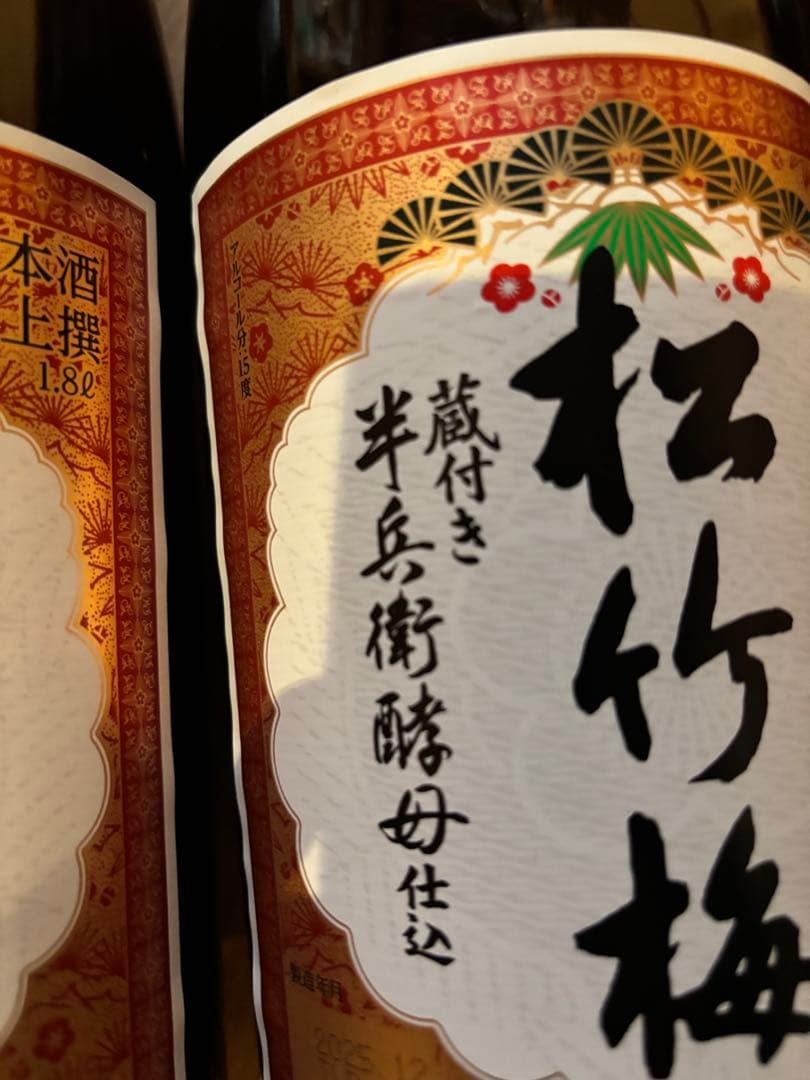 松竹梅
蔵付き
半兵衛酵母仕込
アルコール分:15度
製造年月
2025.12
酒撰
本上
1.8ℓ